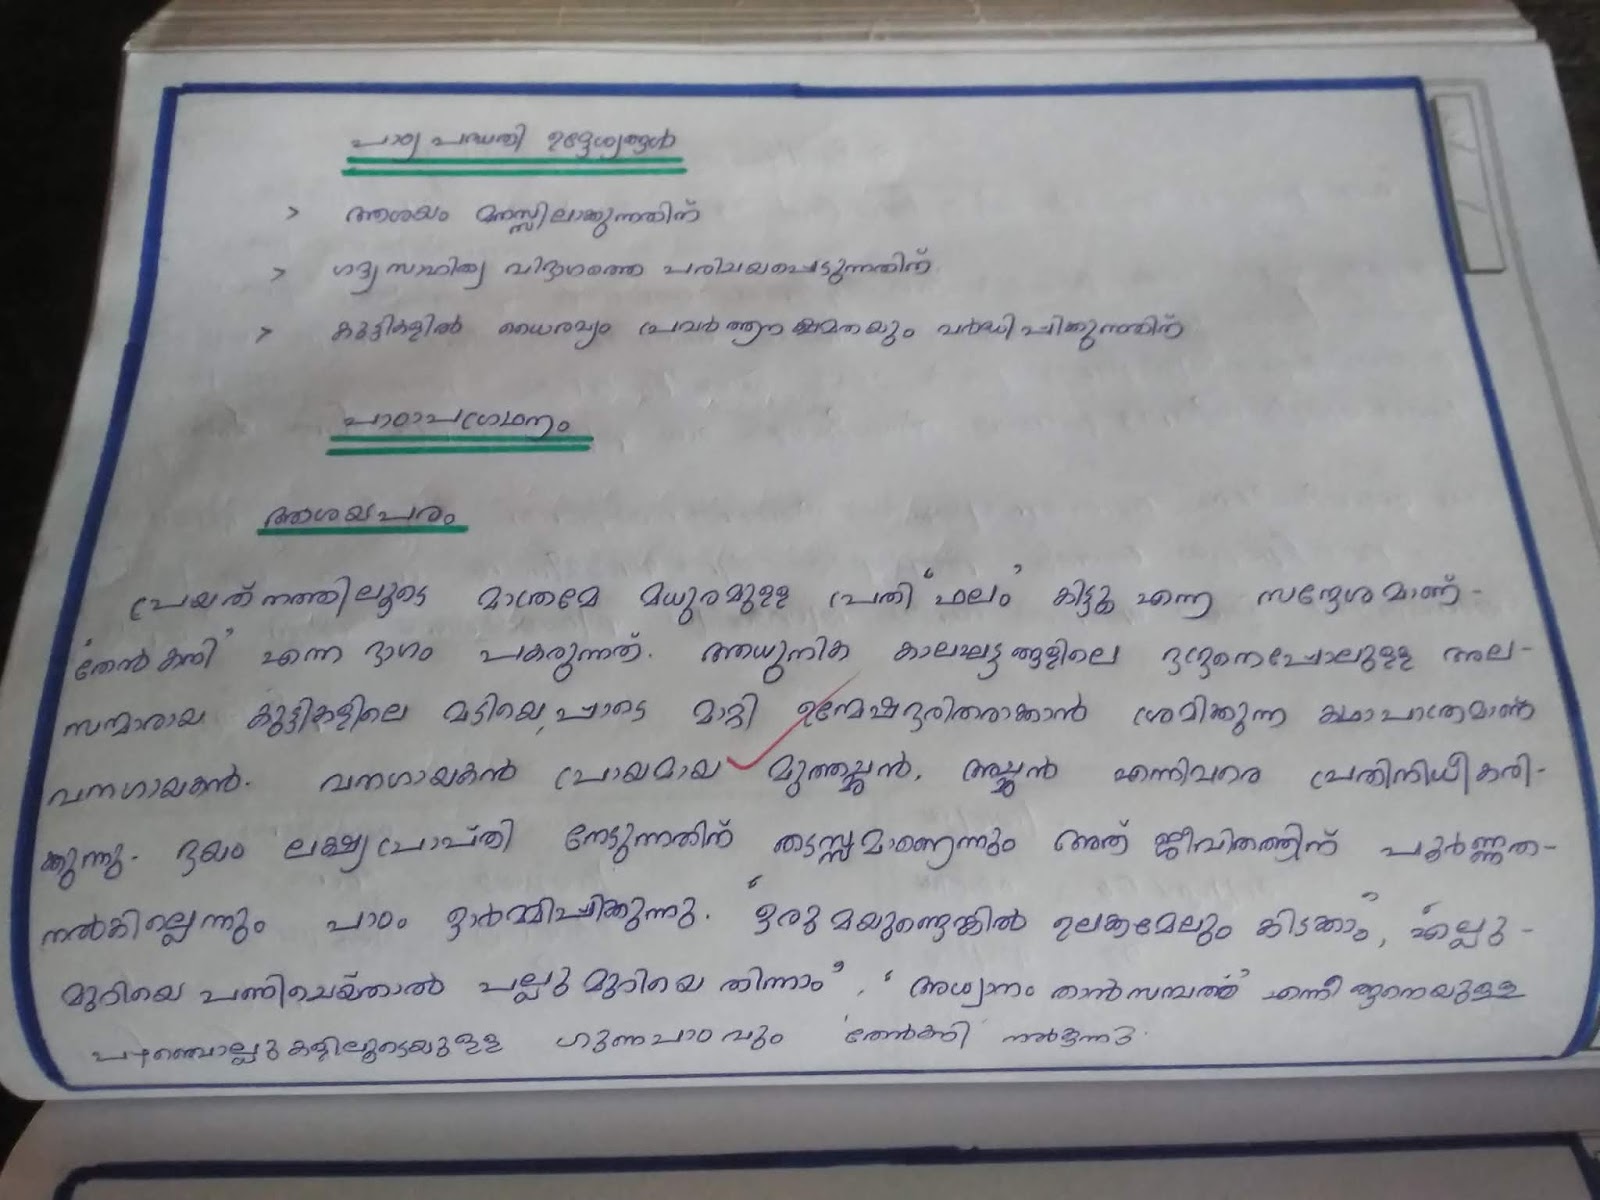 പാഠ്യ പദ്ധതി ഉദ്ദേശ്യങ്ങൾ
> ആശയം മനസ്സിലാക്കുന്നതിന്
> ഗദ്യ സാഹിത്യ വിഭാഗത്തെ പരിചയപ്പെടുന്നതിന്
> കുട്ടികളിൽ ധൈര്യവും പ്രവർത്തന ക്ഷമതയും വർദ്ധിപ്പിക്കുന്നതിന്
പാഠാപഗ്രഥനം
ആശയപരം
പ്രയത്നത്തിലൂടെ മാത്രമേ മധുരമുള്ള പ്രതി 'ഫലം' കിട്ടൂ എന്ന സന്ദേശമാണ്-
'തേൻ കനി' എന്ന ഭാഗം പകരുന്നത്. ആധുനിക കാലഘട്ടങ്ങളിലെ ഭട്ടനെപ്പോലുള്ള അല-
സന്മാരായ കുട്ടികളിലെ മടിയെപ്പാടെ മാറ്റി ഉന്മേഷഭരിതരാക്കാൻ ശ്രമിക്കുന്ന കഥാപാത്രമാണ്
വനഗായകൻ. വനഗായകൻ പ്രായമായ മുത്തച്ഛൻ, അച്ഛൻ എന്നിവരെ പ്രതിനിധീകരി-
ക്കുന്നു. ഭയം ലക്ഷ്യപ്രാപ്തി നേടുന്നതിന് തടസ്സമാണെന്നും അത് ജീവിതത്തിന് പൂർണ്ണത-
നൽകില്ലെന്നും പാഠം ഓർമ്മിപ്പിക്കുന്നു. 'ഒരുമയുണ്ടെങ്കിൽ ഉലക്കമേലും കിടക്കാം', 'എല്ലു-
മുറിയെ പണിചെയ്താൽ പല്ലു മുറിയെ തിന്നാം', 'അധ്വാനം താൻ സമ്പത്ത്' എന്നീ തുടങ്ങിയുള്ള
പഴഞ്ചൊല്ലുകളിലൂടെയുള്ള ഗുണപാഠവും 'തേൻകനി' നൽകുന്നു.